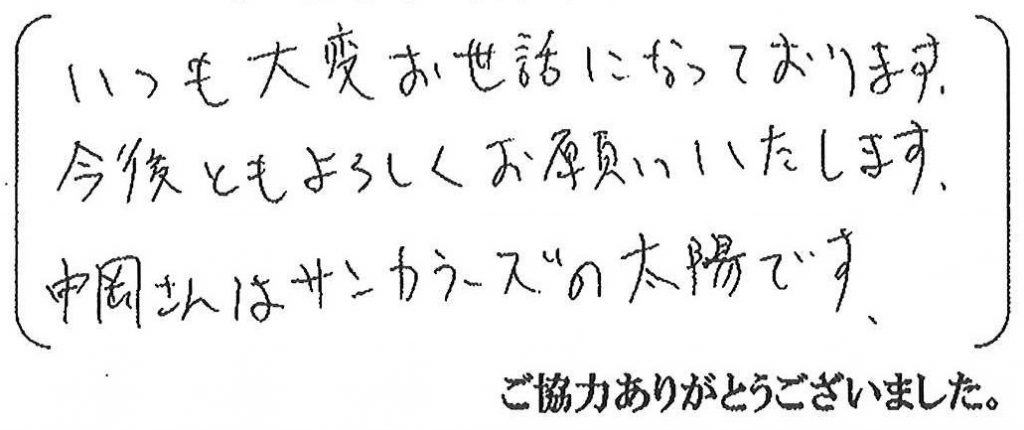 いつも大変お世話になっております.
今後ともよろしくお願いいたします.
中岡さんはサンカラーズの太陽です.
ご協力ありがとうございました。